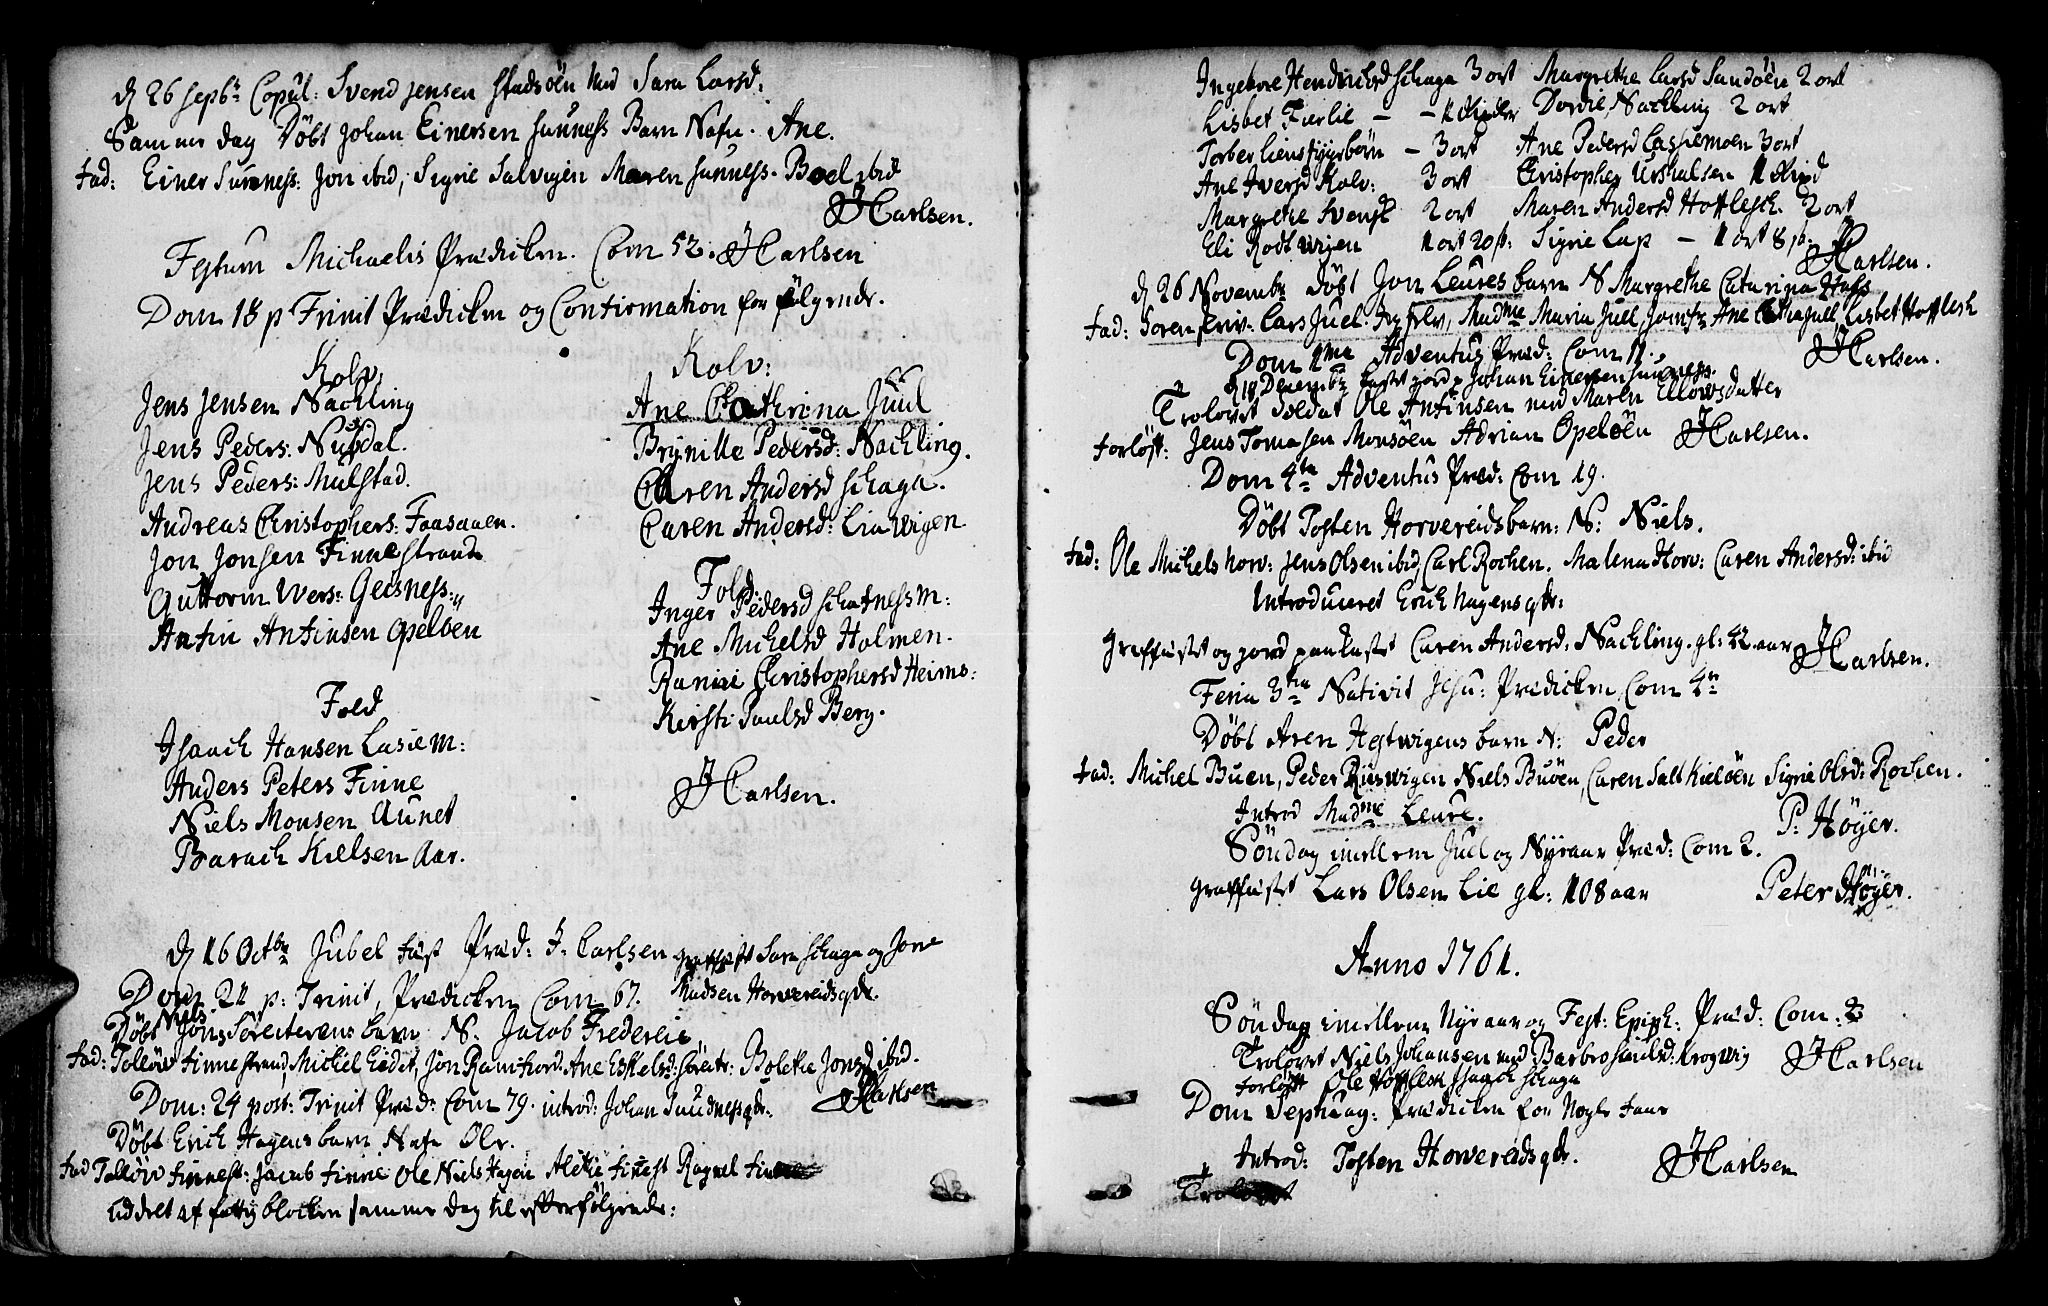 d 26 Septbr Copul: Svend Jensen Stadsöen med Sara Larsd:
Samme dag Döbt Johan Einersen Sunness Barn Nafn. Ane.
Fad: Einer Sunness: Jon ibid, Sigrie Salvigen Maren Sunness. Boel ibid
JHarlsen.
Festum Michaelis Prædicken. Com 52. JHarlsen
Dom 18 p Trinit Prædicken og Confirmation for fölgende.
Kolv:
Jens Jensen Nachling
Jens Peders: Nusdal.
Jens Peders: Mulstad.
Andreas Christophers: Faasaaen.
Jon Jonsen Finnestrand
Guttorm Wers: Geisness:
Antin Antinsen Opelöen
Fold
Isaach Hansen Lasiem:
Anders Peters Finne
Niels Monsen Aunet
Barach Kielsen Aar.
Kolv:
Ane Cathrina Juul
Brynille Pedersd: Nachling.
Caren Andersd Schage.
Caren Andersd: Liawigen
Fold
Inger Pedersd Schatnessm:
Ane Michelsd Holmen.
Ranni Christophersd Heims:
Kirsti Paulsd Berg.
JHarlsen.
d 16 Octbr Jubel Fest Præd: J. Carlsen Graffæst Sara Schage og Jone
Dom 21 p: Trinit, Prædicken Com 67. Madsen Horvereidsqde.
Niels
Döbt Jons barn N: Jacob Frederic
Fad: Tollöv Finnestrand, Michel Eidet, Jon Ramfiord, Ane Eskelsd: Boletie Jonsd ibid.
Dom: 24 post: Trinit Præd: Com 79. introd: Johan Sundnessqde. JHarlsen
Döbt Erich Hagens barn Nafn Ole.
Fad Tollöv Finnest: Jacob Finne Ole Niels Hagen Aletie Finest Ragnel
Uddelt af fattig blocken samme dag til efterfölgende:
Ingebor Hendrichsd Schage 3 ort Margrethe Larsd Sandöen 2 ort
Lisbet Fierlie - - 1 Dordie Nachling 2 ort
Torber - 3 ort Ane Pedersd Lassiemoen 3 ort
Ane Iversd Kolv: 3 ort Christopher Urstadsen 1
Margrethe Svensk 2 ort Maren Andersd Hofflesch. 2 ort
Eli Rodtwigen 1 ort 20 s: Sigrie Lap - 1 ort 8 s:
JHarlsen.
d 26 Novembr Döbt Jon Leures barn N Margrethe Catarina
Fad: Soren Lars Juel. Madme Maria Juel, Jomfr Ane Juell Lisbet Hofflesch
Dom 1ma Adventus Præd: Com 11. JHarlsen.
d 10 Decembr kastet jord p Johan Einersen Sunness.
Trolovet Soldat Ole Antinsen med Maren Ellovsdatter
Forlöft: Jens Tomasen Monsöen Adrian Opelöen JHarlsen.
Dom 4ta Adventus Præd: Com 19.
Döbt Tosten Horvereidsbarn: N: Niels.
Fad: Ole Michels Horv: Jens Olsen ibid, Carl Rochen. Malena Horv: Caren Andersd: ibid
Introduceret Erich Hagensqde:
Graffæstet og jord paakastet Caren Andersd: Nachling. gl: 42 aar JHarlsen.
Feria 3tia Nativit Jesu: Prædicken, Com 4
Döbt Aren Hestwigens barn N: Peder
Fad: Michel Buen, Peder Risswigen Niels Buöen, Caren Saltkielöen Sigrie Olsd: Rochen.
Introd Madme Leure. P: Höyer.
Söndag imellem Juel og Nyeaar Præd: Com 2.
Graffæstet Lars Olsen Lie gl: 108 aar Peter Höyer.
Anno 1761.
Söndag imellem Nyeaar og Fest: Epiph: Præd: Com: 2
Trolovet Niels Johansen med Barbro Paulsd: Krogwig JHarlsen
Forlöft Ole Hofflesch Isaach Schage
Dom Septuag: Prædicken for Nogle Faae
Introd: Tosten Horvereidsqde. JHarlsen
Trolovet